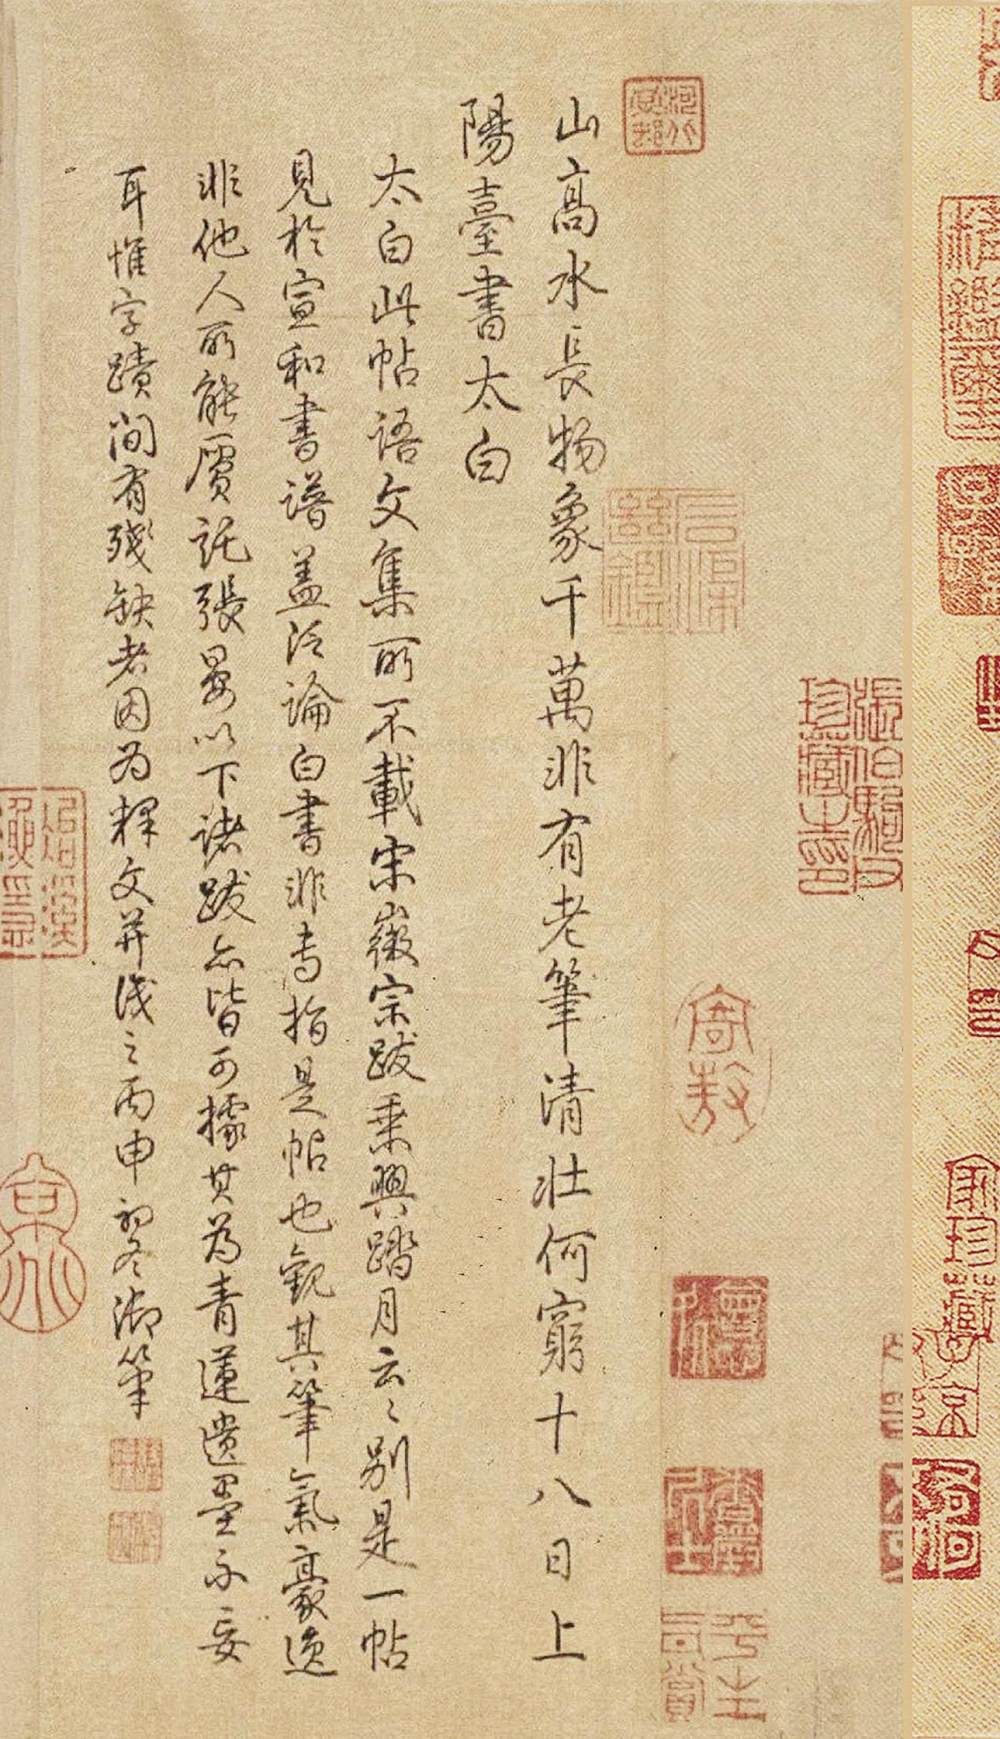 山高水長物象千萬非有老筆清壯何窮十八日上
陽臺書太白
太白此帖語文集所不載宋徽宗跋乘興踏月云云別是一帖
見於宣和書譜蓋泛論白書非専指是帖也觀其筆氣豪逸
非他人所能贋託張晏以下諸跋亦皆可據其為青蓮遺墨不妄
耳惟字蹟間有殘缺者因为釋文并識之丙申初冬御筆
張伯駒
珍藏印